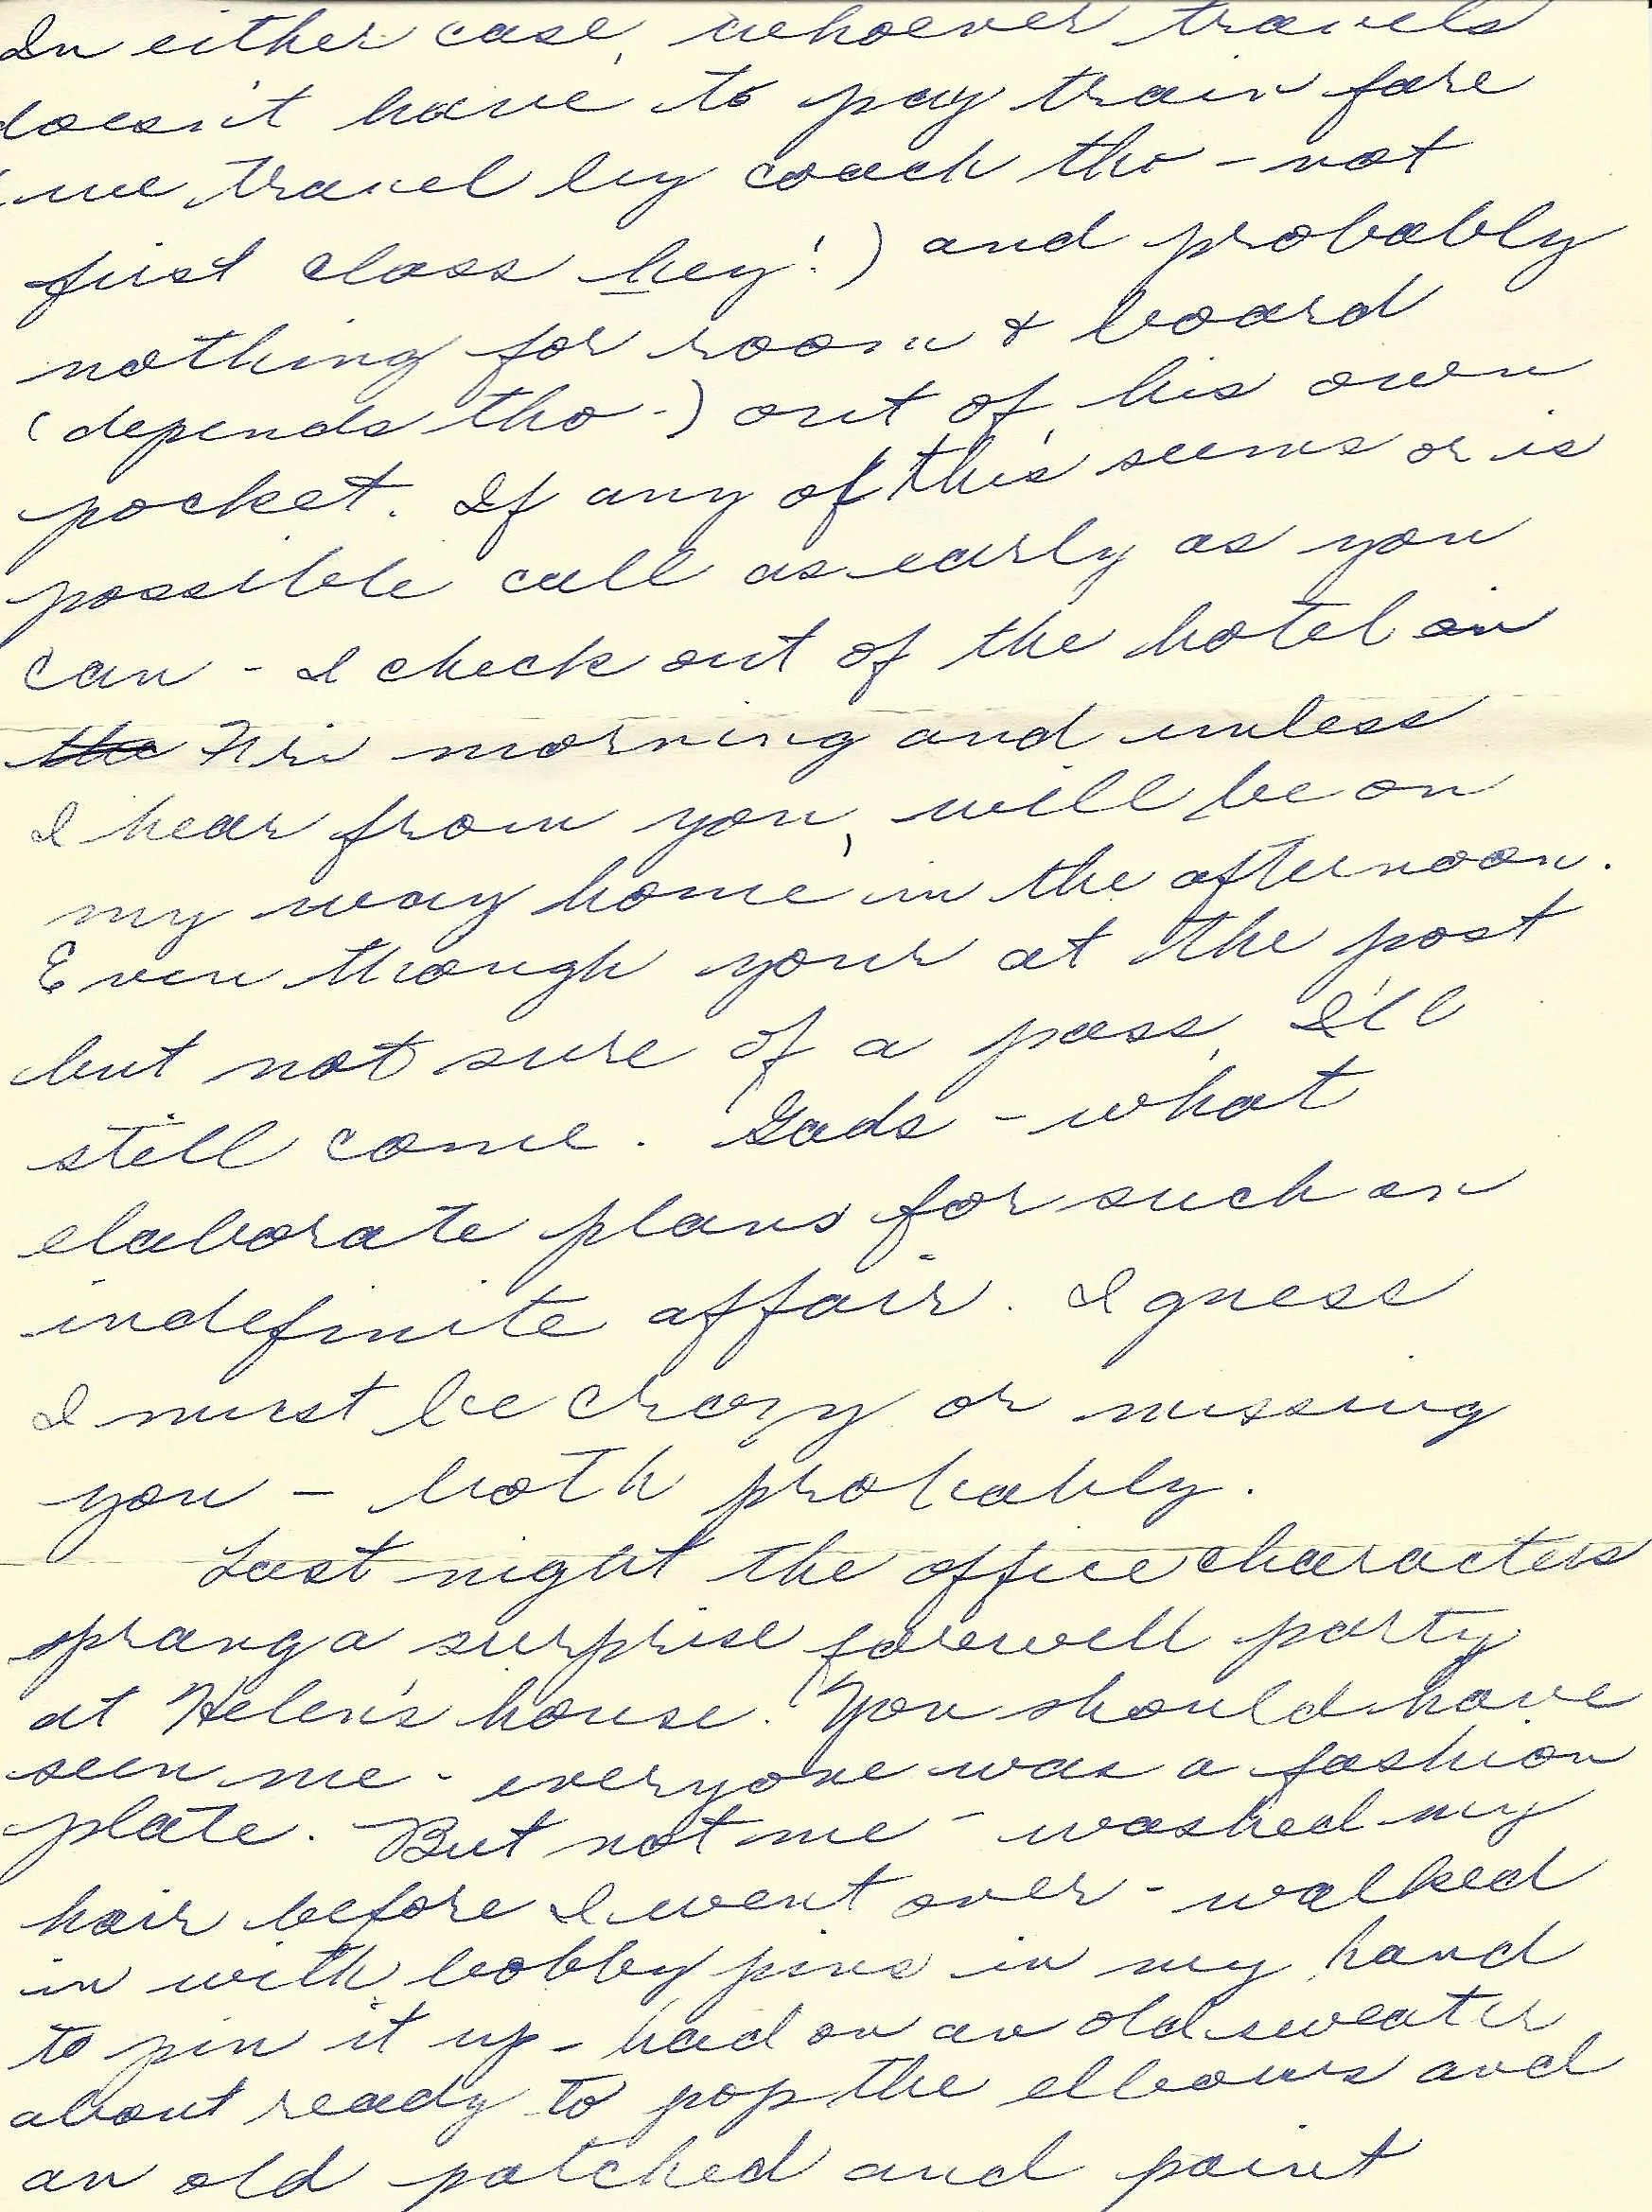 In either case, whoever travels
doesn't have to pay train fare
(we travel by coach tho - not
first class hey!) and probably
nothing for room & board
(depends tho -) out of his own
pocket. If any of this seems or is
possible call as early as you
can - I check out of the hotel on
the Fri morning and unless
I hear from you, will be on
my way home in the afternoon.
Even though your at the post
but not sure of a pass, I'll
still come. Gads - what
elaborate plans for such an
indefinite affair. I guess
I must be crazy or missing
you - both probably.
Last night the office characters
sprang a surprise farewell party
at Helen's house. You should have
seen me - everyone was a fashion
plate. But not me - washed my
hair before I went over - walked
in with bobby pins in my hand
to pin it up - had on an old sweater
about ready to pop the elbows and
an old patched and paint